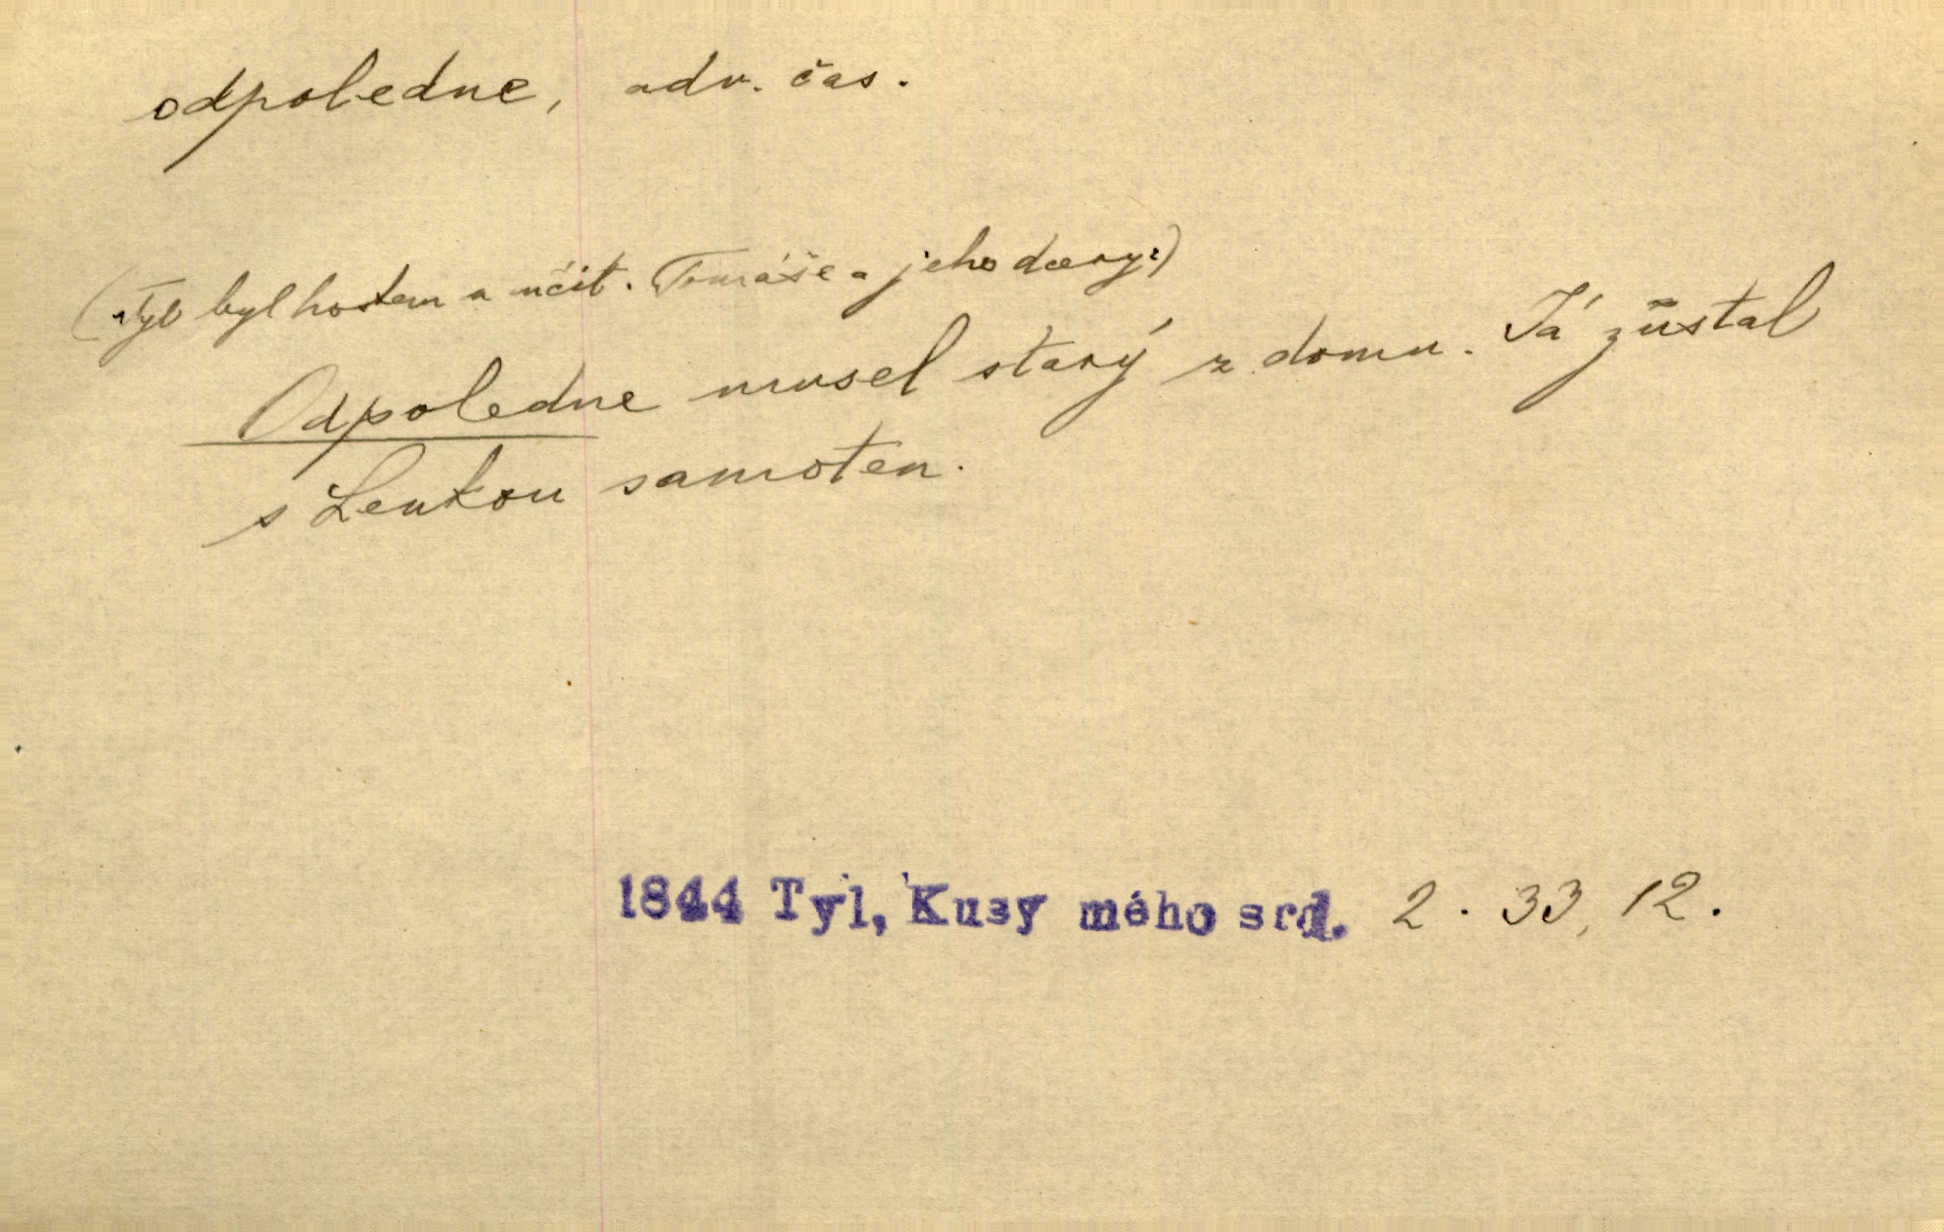 odpoledne, adv. čas.
(Tyl byl hostem u učit. Tomáše a jeho dcery:)
Odpoledne musel starý z domu. Já zůstal
s Lenkou samoten.
1844 Tyl, Kusy mého srd. 2. 33, 12.